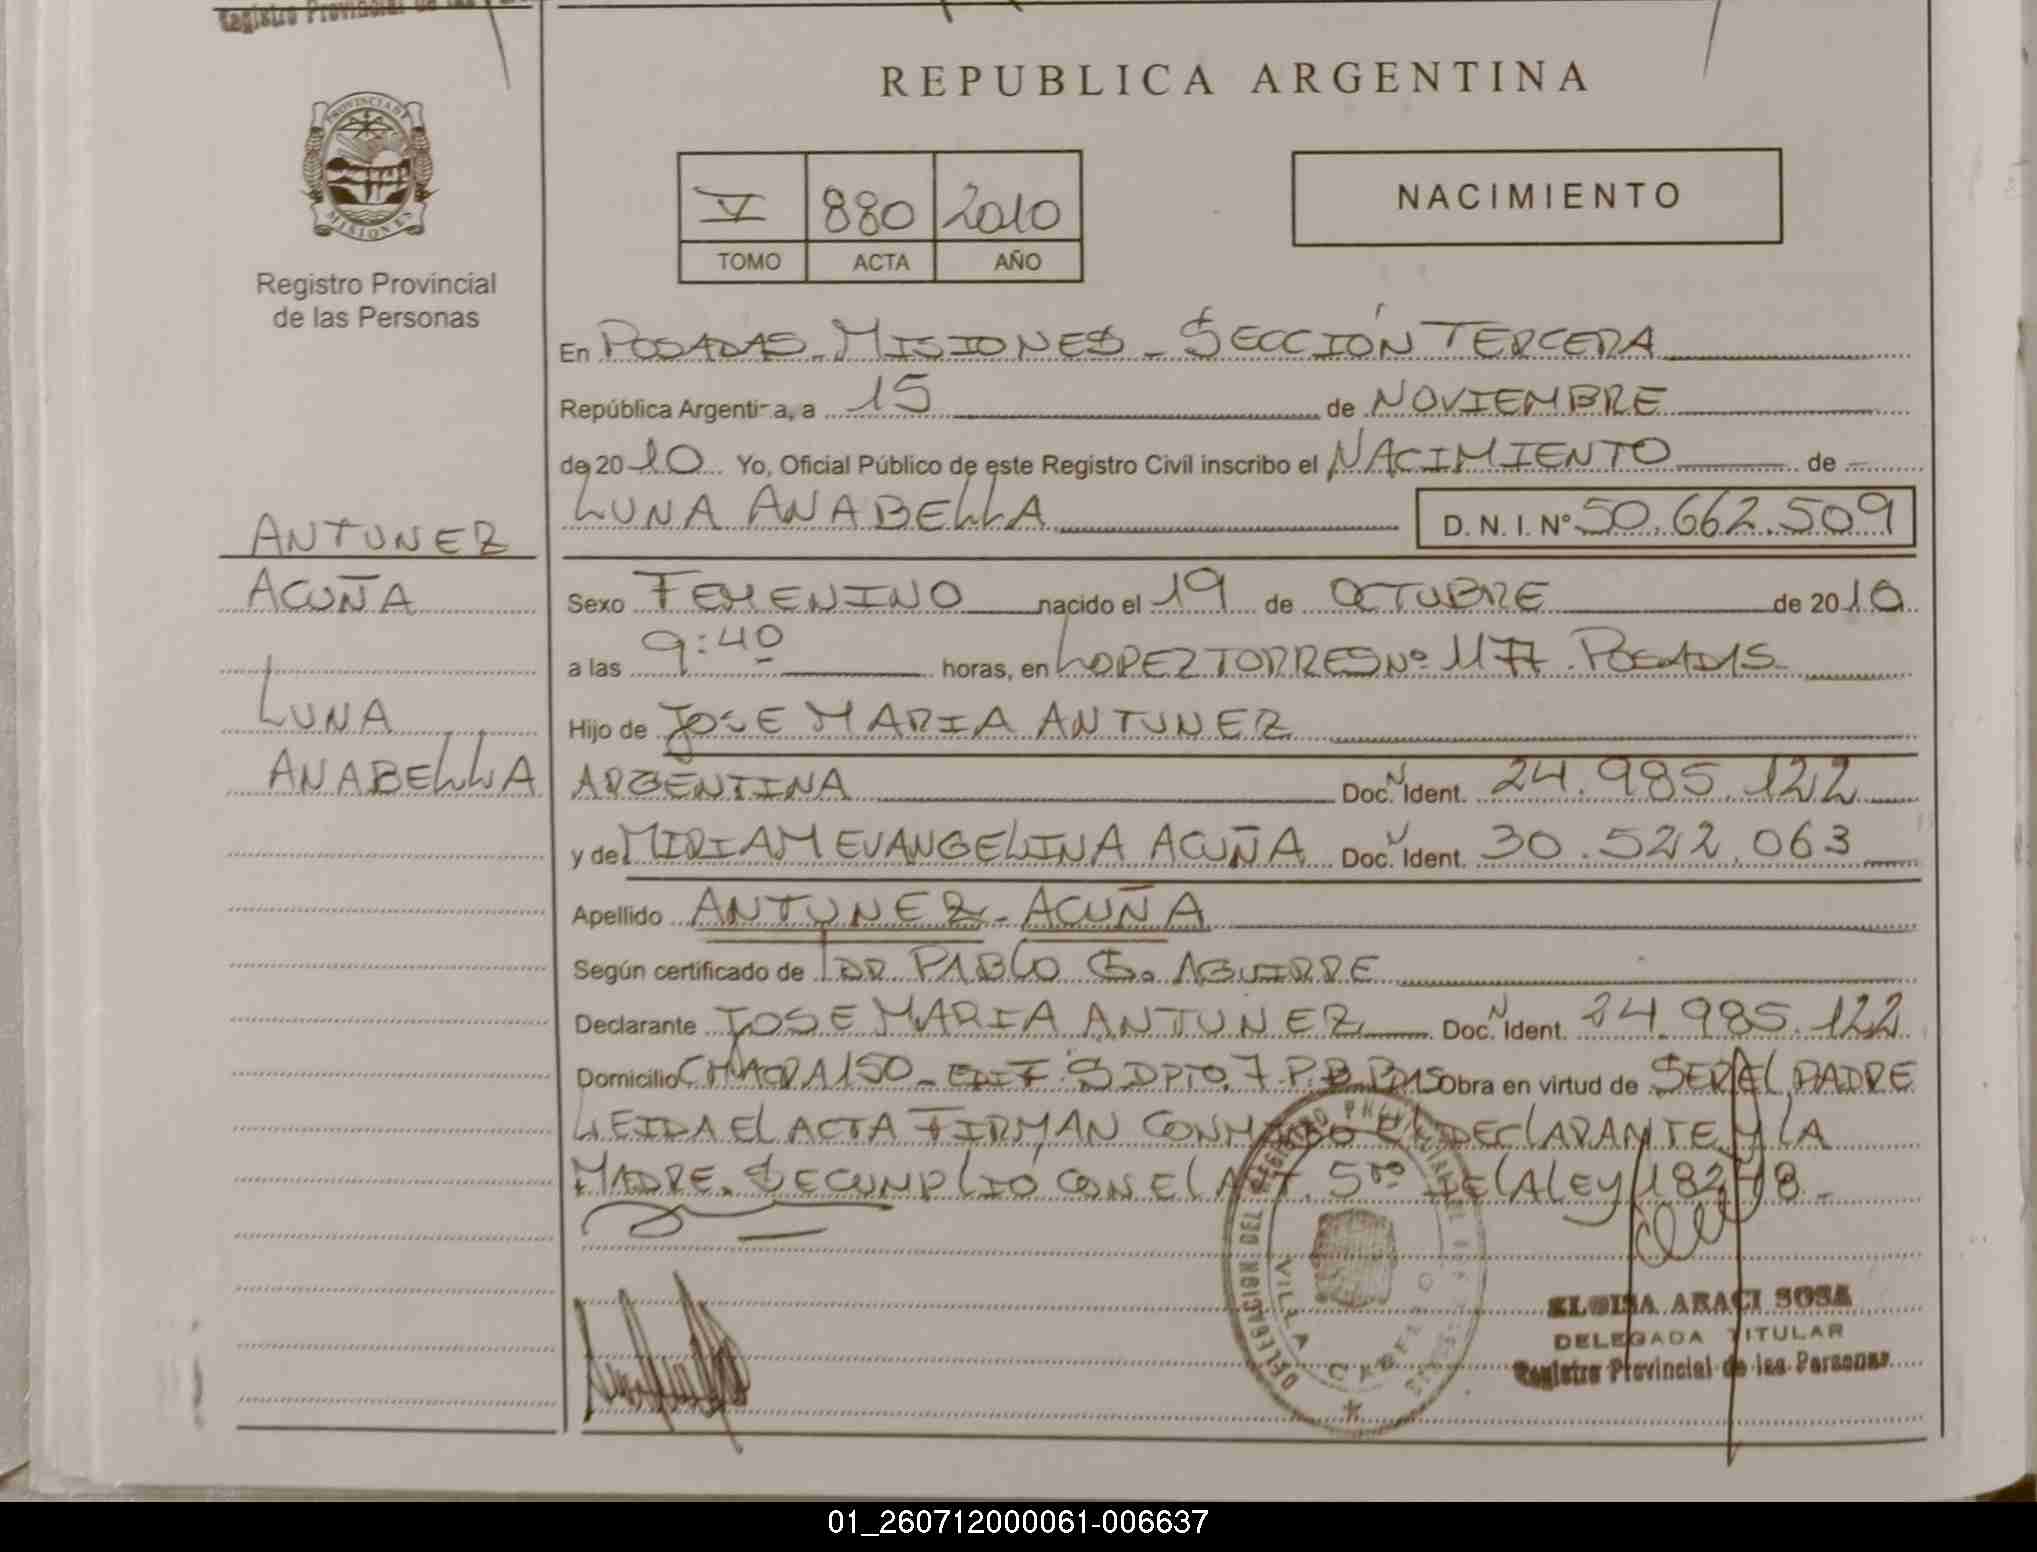 Registro Provincial de las
REPUBLICA ARGENTINA
PROVINCIA DE
MISIONES
Registro Provincial
de las Personas
V 880 2010
TOMO ACTA AÑO
NACIMIENTO
En POSADAS - MISIONES - SECCIÓN TERCERA
República Argentina, a 15 de NOVIEMBRE
de 2010 Yo, Oficial Público de este Registro Civil inscribo el NACIMIENTO de
LUNA ANABELLA D. N. I. Nº 50.662.509
ANTUNEZ
ACUÑA
LUNA
ANABELLA
Sexo FEMENINO nacido el 19 de OCTUBRE de 2010
a las 9:40 horas, en LOPEZ TORRES Nº 1177. POSADAS
Hijo de JOSE MARIA ANTUNEZ
ARGENTINA Doc. Ident. 24.985.122
y de MIRIAM EVANGELINA ACUÑA Doc. Ident. 30.522.063
Apellido ANTUNEZ - ACUÑA
Según certificado de DR PABLO G. AGUIRRE
Declarante JOSE MARIA ANTUNEZ Doc. Ident. 24.985.122
Domicilio CHACRA 150 - EDIF. S DPTO. 7 P.B. Obra en virtud de SER EL PADRE
LEIDA EL ACTA FIRMAN CONMIGO EL DECLARANTE Y LA
MADRE. SE CUMPLIÓ CON EL ART. 5to DE LA LEY 18248 -
DELEGACION DEL REGISTRO PROVINCIAL DE
VILLA CABELLO
ELOISA ARACI SOSA
DELEGADA TITULAR
Registro Provincial de las Personas
01_260712000061-006637